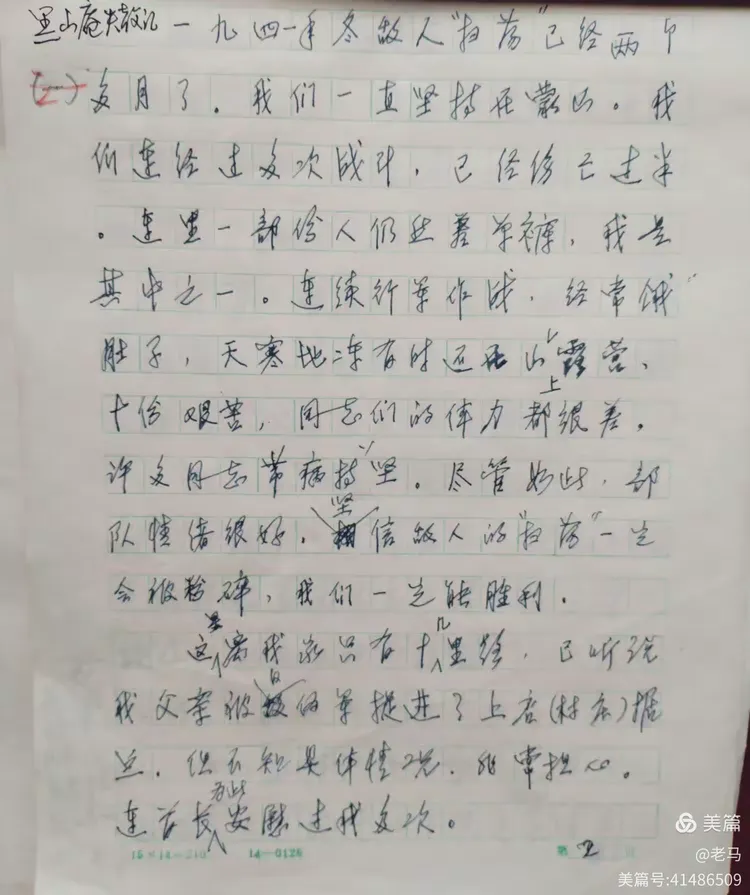 黑山庵失散记 一九四一年冬敌人"扫荡"已经两个
(二) 多月了。我们一直坚持在蒙山。我
们连经过多次战斗，已经伤亡过半
。连里一部份人仍然着单裤，我是
其中之一。连续行军作战，经常饿
肚子，天寒地冻有时还在山上露营、
十分艰苦，同志们的体力都很差。
许多同志带病坚持。尽管如此，部
队情绪很好，坚信敌人的"扫荡"一定
会被粉碎，我们一定能胜利。
这里离我家只有十几里路，已听说
我父亲被日伪军捉进了上店(村庄)据
点，但不知具体情况，非常担心。
连首长为此安慰过我多次。
15×14=210 14—0126 第 2 页
美篇
@老马
美篇号:41486509